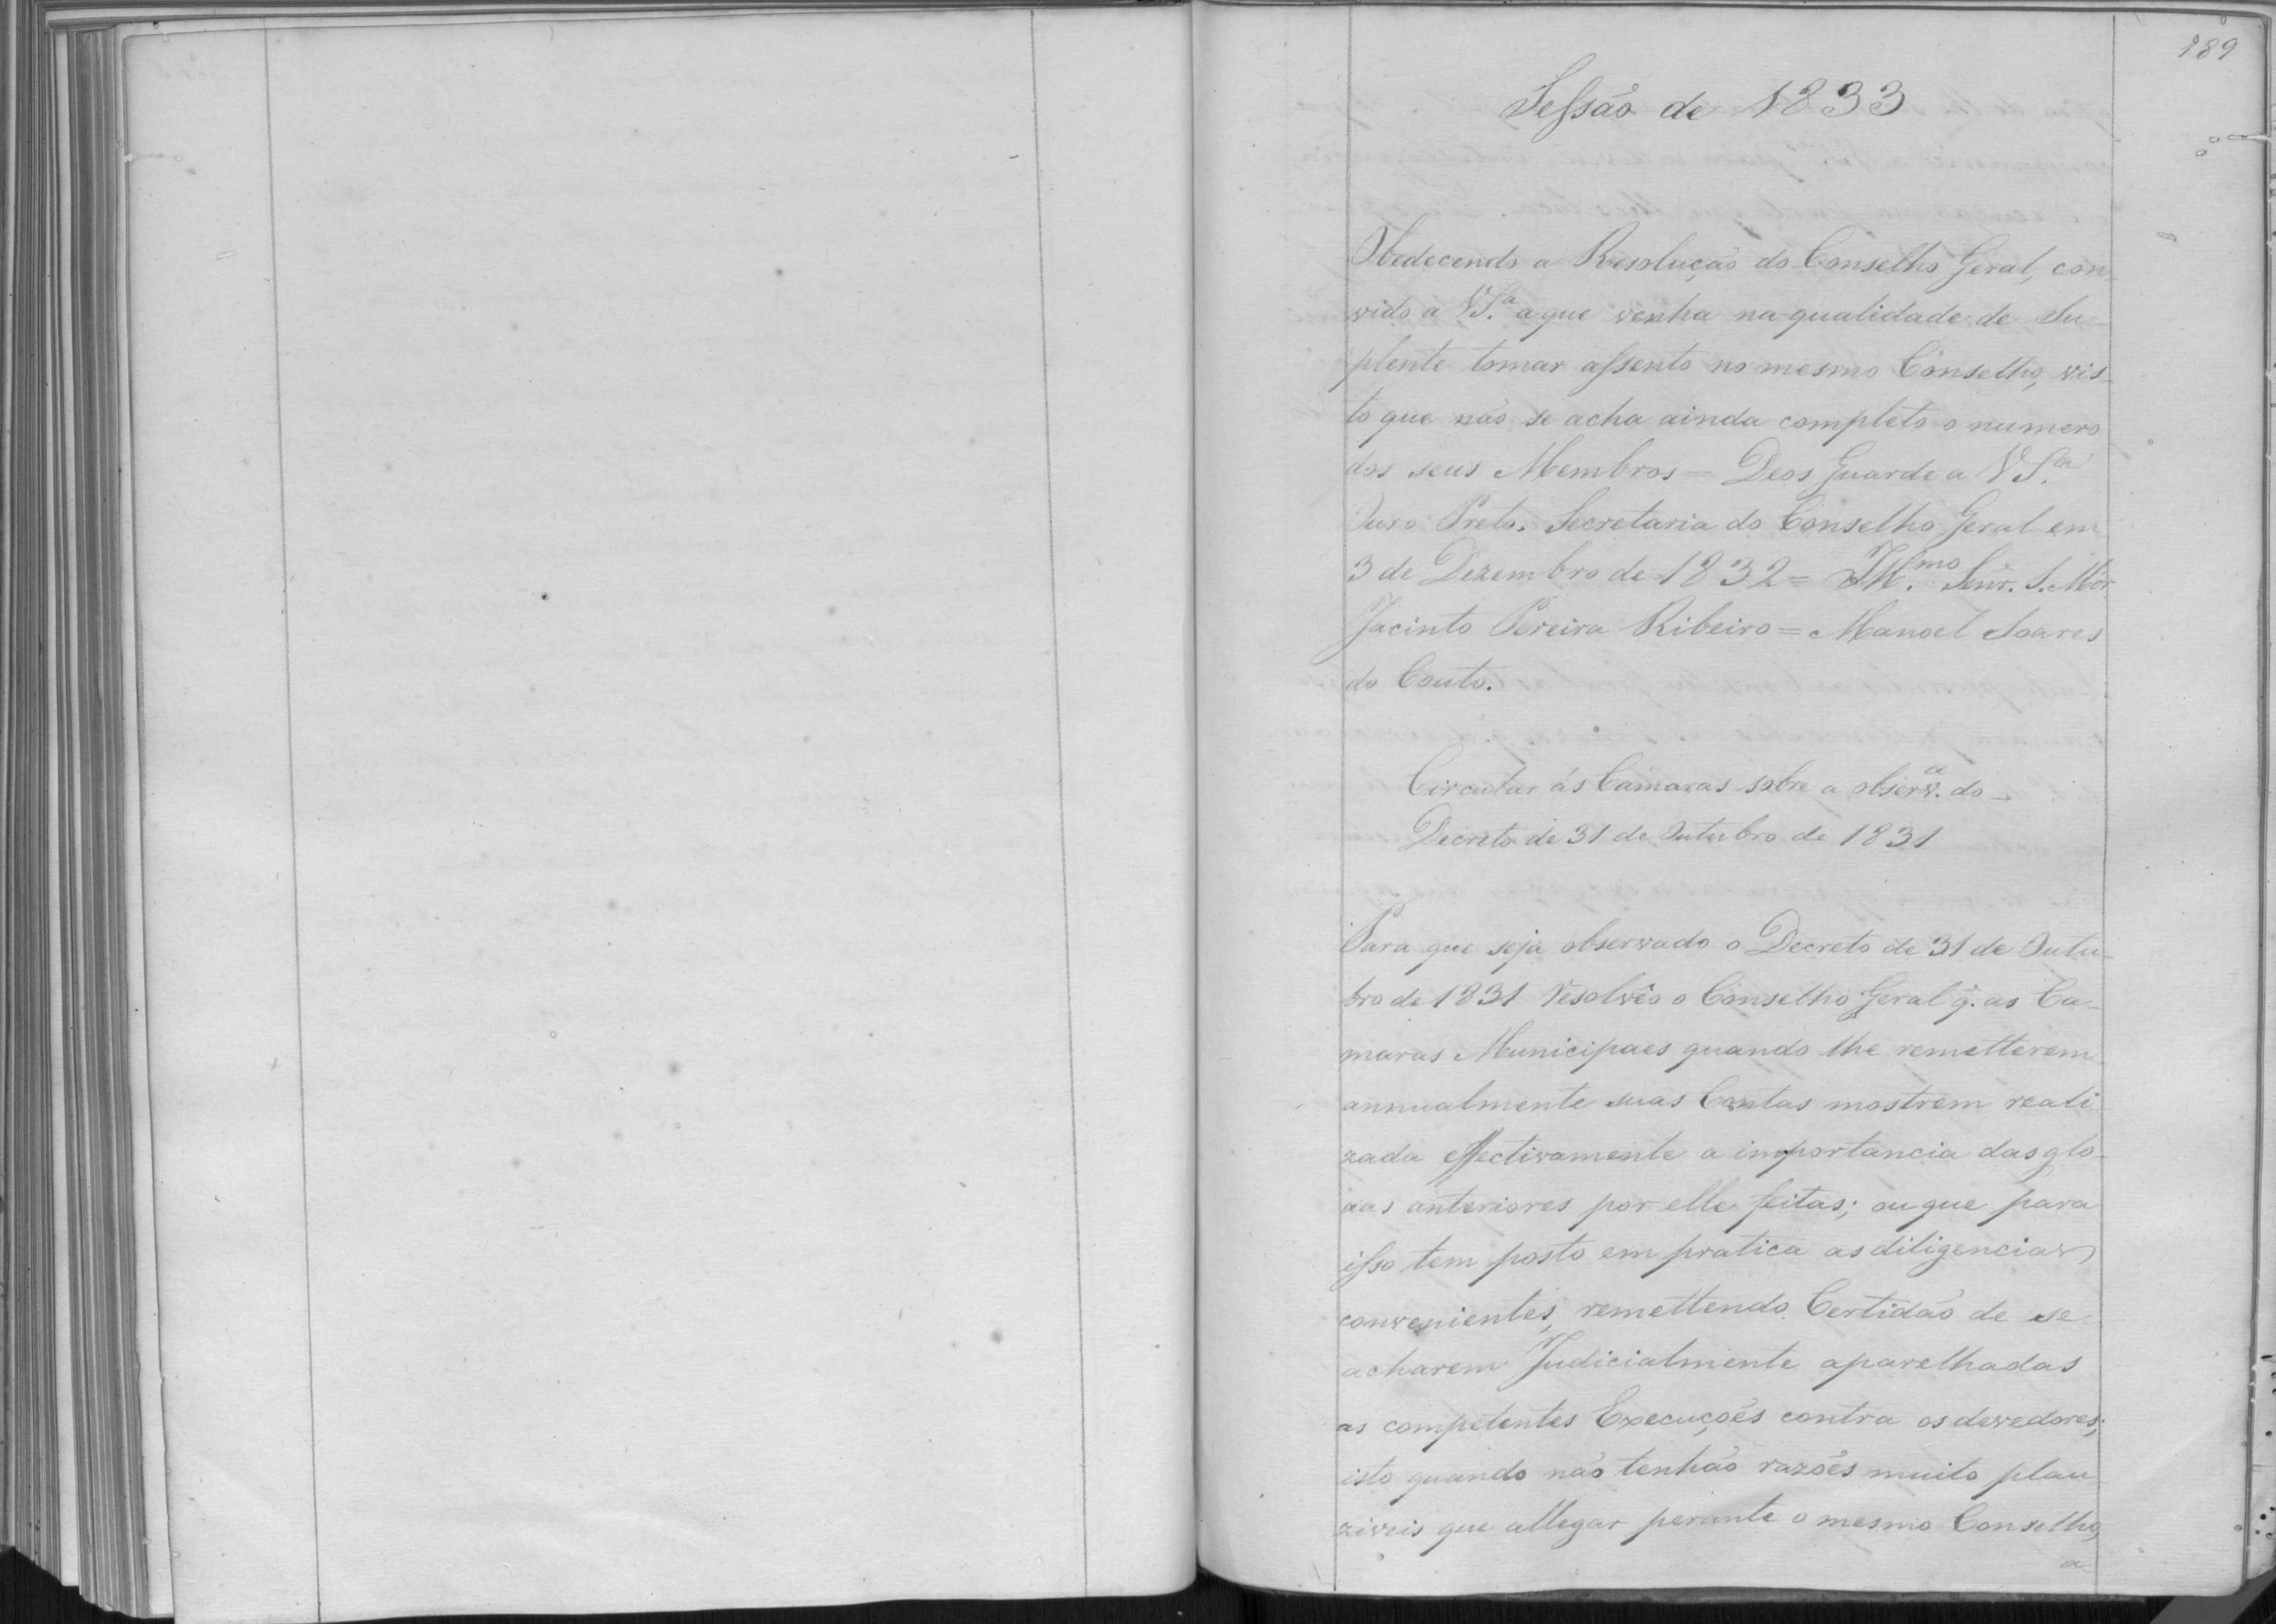 189
Sessão de 1833
Obedecendo a Resolução do Conselho Geral, con-
vido a V.S.ª a que venha na qualidade de Su-
plente tomar assento no mesmo Conselho, vis-
to que não se acha ainda completo o numero
dos seus Membros = Deos Guarde a V.S.ª
Ouro Preto. Secretaria do Conselho Geral em
3 de Dezembro de 1832 = Ill.mo Senr. S. Mór
Jacinto Pereira Ribeiro = Manoel Soares
do Couto.
Circular ás Camaras sobre a observ.ª do
Decreto de 31 de Outubro de 1831
Para que seja observado o Decreto de 31 de Outu-
bro de 1831 resolvêo o Conselho Geral q. as Ca-
maras Municipaes quando lhe remetterem
annualmente suas Contas mostrem reali-
zada effectivamente a importancia das glo-
zas anteriores por elle feitas; ou que para
isso tem posto em pratica as diligencias
convenientes, remettendo Certidão de se
acharem Judicialmente aparelhadas
as competentes Execuções contra os devedores;
isto quando não tenhão razões muito plau-
ziveis que allegar perante o mesmo Conselho,
a